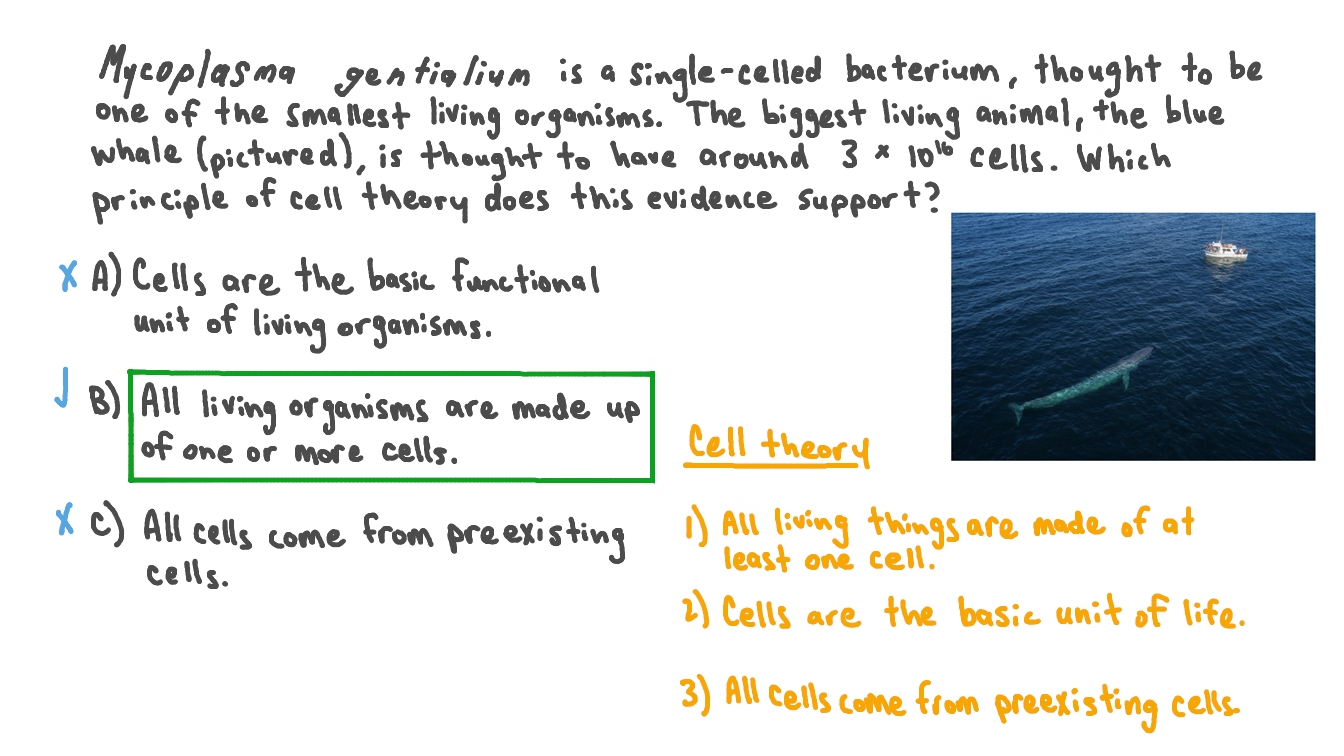 Mycoplasma gentialium is a single-celled bacterium, thought to be
one of the smallest living organisms. The biggest living animal, the blue
whale (pictured), is thought to have around 3 × 10¹⁶ cells. Which
principle of cell theory does this evidence support?
x A) Cells are the basic functional
unit of living organisms.
B) All living organisms are made up
of one or more cells.
x C) All cells come from preexisting
cells.
Cell theory
1) All living things are made of at
least one cell.
2) Cells are the basic unit of life.
3) All cells come from preexisting cells.